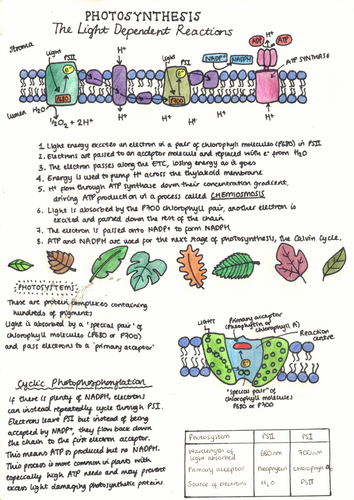 PHOTOSYNTHESIS
The Light Dependent Reactions
Stroma
light
PSII
H+
light
PSI
NADP+
NADPH
ADP
H+
ATP
ATP SYNTHASE
P680
P700
Lumen
H2O
½O2 + 2H+
H+
H+
1. Light energy excites an electron in a pair of chlorophyll molecules (P680) in PSII
2. Electrons are passed to an acceptor molecule and replaced with e- from H2O
3. The electron passes along the ETC, losing energy as it goes
4. Energy is used to pump H+ across the thylakoid membrane
5. H+ flow through ATP synthase down their concentration gradient,
driving ATP production in a process called CHEMIOSMOSIS
6. Light is absorbed by the P700 chlorophyll pair, another electron is
excited and passed down the rest of the chain
7. The electron is passed onto NADP+ to form NADPH.
8. ATP and NADPH are used for the next stage of photosynthesis, the Calvin Cycle.
PHOTOSYSTEMS
These are protein complexes containing
hundreds of pigments
Light is absorbed by a 'special pair' of
chlorophyll molecules (P680 or P700)
and pass electrons to a 'primary acceptor'
LIGHT
Primary acceptor
(Pheophytin or
chlorophyll A)
Reaction
centre
"special pair" of
chlorophyll molecules
P680 or P700
Cyclic Photophosphorylation
if there is plenty of NADPH, electrons
can instead repeatedly cycle through PSI.
Electrons leave PSI but instead of being
accepted by NADP+, they flow back down
the chain to the first electron acceptor.
This means ATP is produced but no NADPH.
This process is more common in plants with
especially high ATP needs and may prevent
excess light damaging photosynthetic proteins.
Photosystem PSII PSI
Wavelength of
light absorbed 680nm 700nm
Primary acceptor Chlorophyll A
Source of electrons H2O PSII